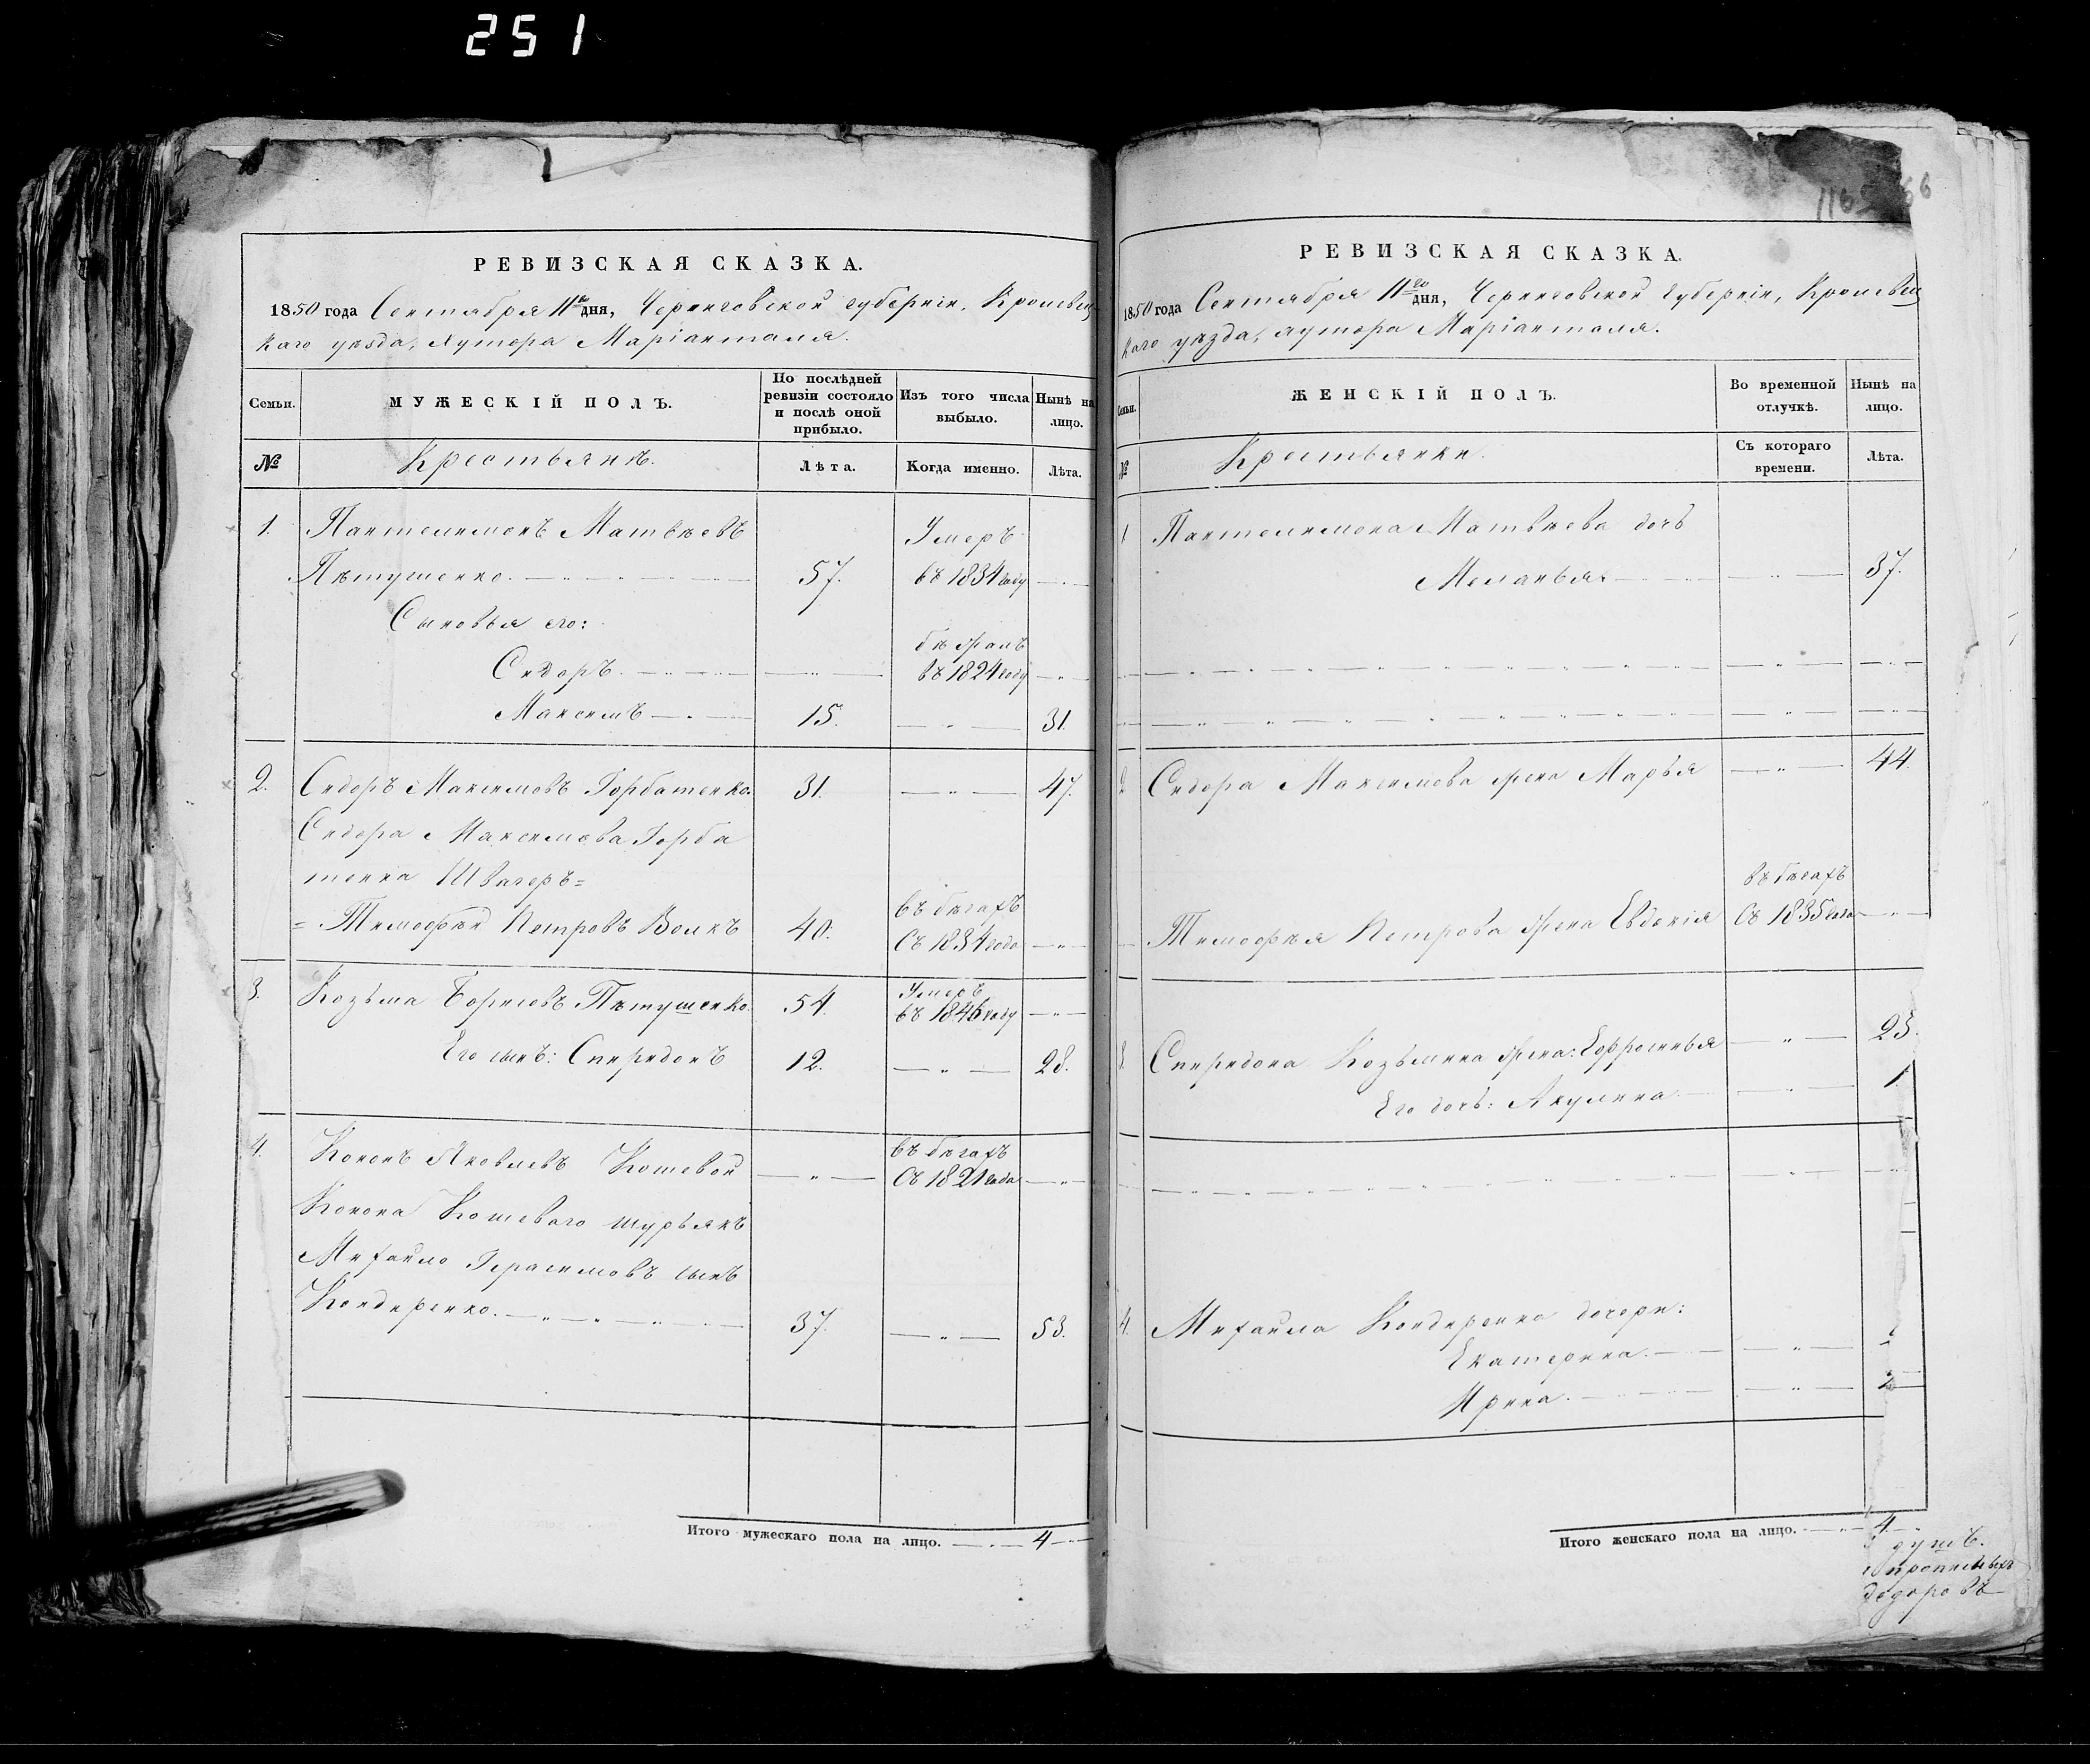 251
РЕВИЗСКАЯ СКАЗКА.
1850 года Сентября 11го дня, Черниговской губернiи, Кролевец-
каго уѣзда, хутора Марiанталя.
Семьи.
МУЖЕСКIЙ ПОЛЪ.
По послѣдней
ревизiи состояло
и послѣ оной
прибыло.
Изъ того числа
выбыло.
Нынѣ на
лицо.
№
Крестьянѣ.
Лѣта.
Когда именно.
Лѣта.
1. Пантелимонъ Матвѣевъ
Умеръ
Пѣтушенко. 57. въ 1834 году
Сыновья его:
бѣжалъ
Сидоръ. въ 1824 году
Максимъ 15. 31.
2. Сидоръ Максимовъ Горбатенко. 31. 47.
Сидора Максимова Горба
тенка Швагеръ=
въ бѣгахъ
= Тимофѣй Петровъ Волкъ 40. Съ 1834 года
3. Козьма Борисовъ Пѣтушенко. 54. Умеръ
въ 1846 году
Его сынъ: Спиридонъ 12. 28.
4. Кононъ Яковлевъ Кошевой въ бѣгахъ
Съ 1821 года
Конона Кошеваго шурьякъ
Михайло Герасимовъ сынъ
Кондиренко. 37. 53.
Итого мужескаго пола на лицо. 4
116 66
РЕВИЗСКАЯ СКАЗКА.
1850 года Сентября 11го дня, Черниговской Губернiи, Кролевец
каго уѣзда, хутора Марiанталя.
Семьи.
ЖЕНСКIЙ ПОЛЪ.
Во временной
отлучкѣ.
Нынѣ на
лицо.
№
Крестьянки.
Съ котораго
времени.
Лѣта.
1 Пантелимона Матвѣева дочь
Меланья 37.
2 Сидора Максимова жена Марья 44.
въ бѣгахъ
Тимофѣя Петрова жена Евдокiя Съ 1835 года
3. Спиридона Козьмина жена: Ефросинья 23.
Его дочь: Акулина 1
4. Михайла Кондиренка дочери:
Екатерина.
Ирина. 2
Итого женскаго пола на лицо. 4.
душъ.
Федоровъ